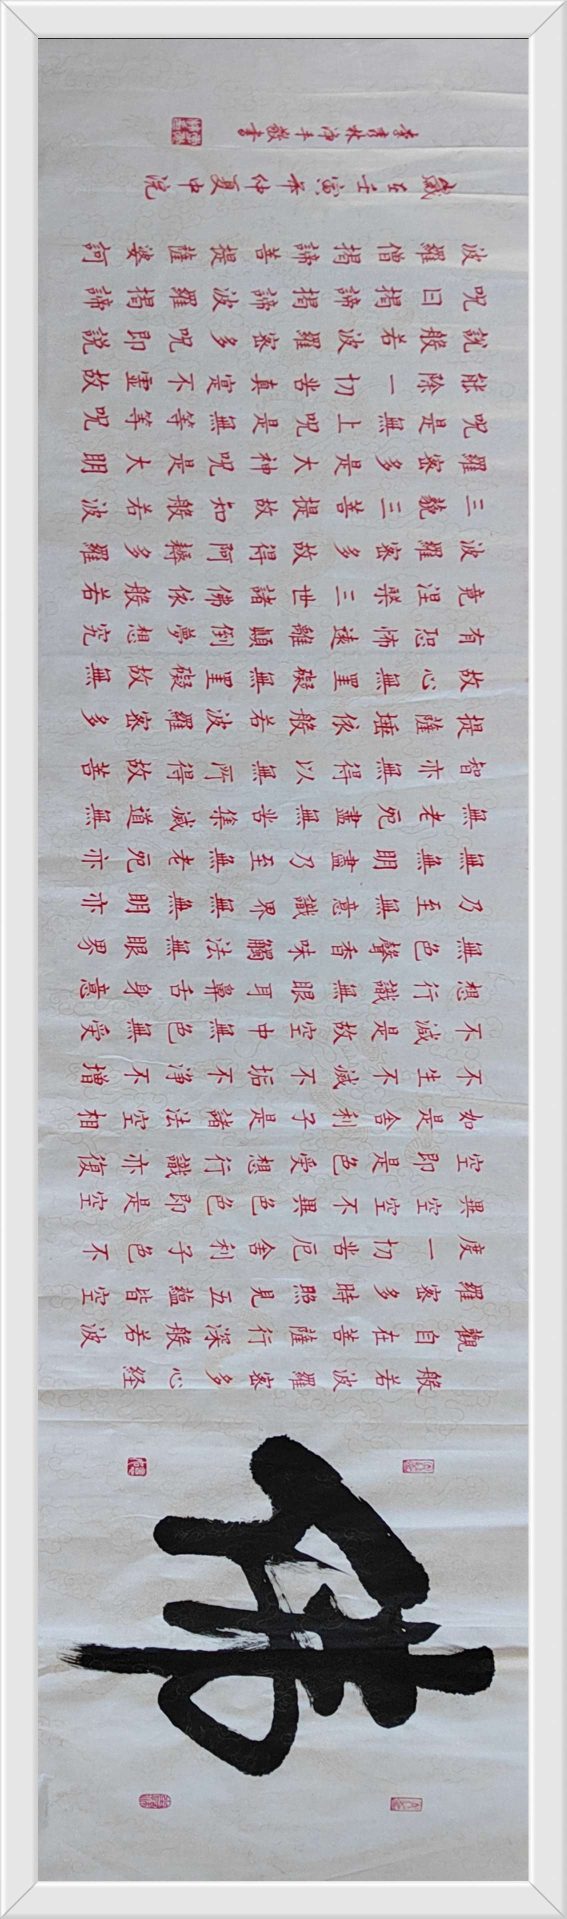 佛
般若波羅蜜多心経
觀自在菩薩行深般若波
羅蜜多時照見五蘊皆空
度一切苦厄舍利子色不
異空空不異色色即是空
空即是色受想行識亦復
如是舍利子是諸法空相
不生不滅不垢不净不增
不減是故空中無色無受
想行識無眼耳鼻舌身意
無色聲香味觸法無眼界
乃至無意識界無無明亦
無無明盡乃至無老死亦
無老死盡無苦集滅道無
智亦無得以無所得故菩
提薩埵依般若波羅蜜多
故心無罣礙無罣礙故無
有恐怖遠離顛倒夢想究
竟涅槃三世諸佛依般若
波羅蜜多故得阿耨多羅
三藐三菩提故知般若波
羅蜜多是大神呪是大明
呪是無上呪是無等等呪
能除一切苦真寔不虛故
說般若波羅蜜多呪即說
呪曰揭諦揭諦波羅揭諦
波羅僧揭諦菩提薩婆訶
歲在壬寅年仲夏中浣
李彥林净手敬書